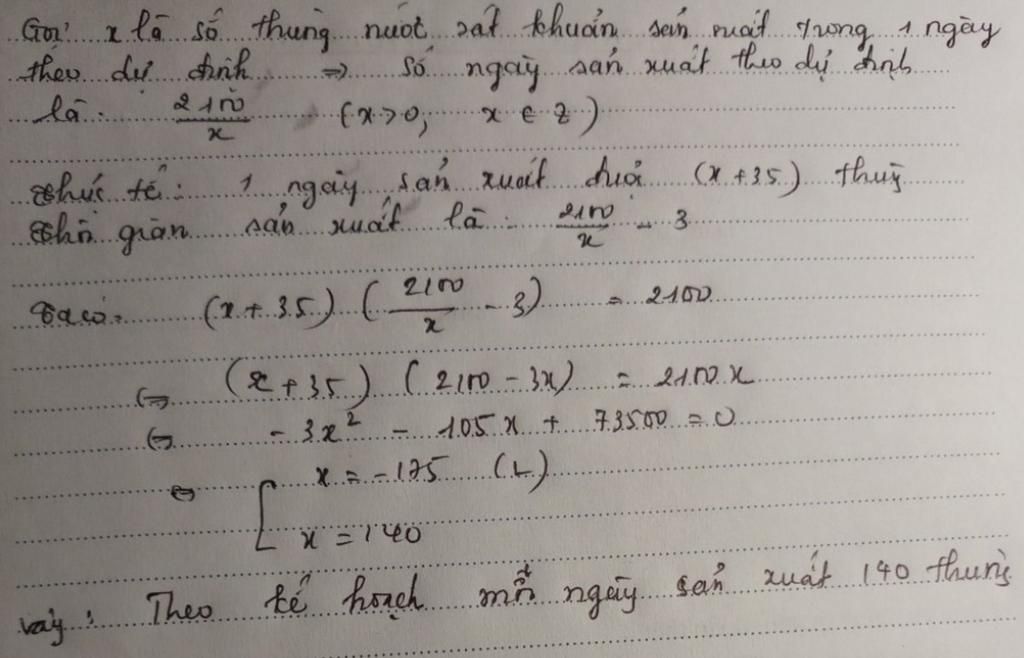 Gọi x là số thùng nước sát khuẩn sản xuất trong 1 ngày
theo dự định ⇒ số ngày sản xuất theo dự định
là: 2100/x (x>0; x ∈ Z)
Thực tế: 1 ngày sản xuất được (x+35) thùng
Thời gian sản xuất là: 2100/x - 3
Ta có: (x+35) (2100/x - 3) = 2100
⇔ (x+35) (2100-3x) = 2100x
⇔ -3x² - 105x + 73500 = 0
⇔ [ x = -175 (L)
x = 140
Vậy: Theo kế hoạch mỗi ngày sản xuất 140 thùng